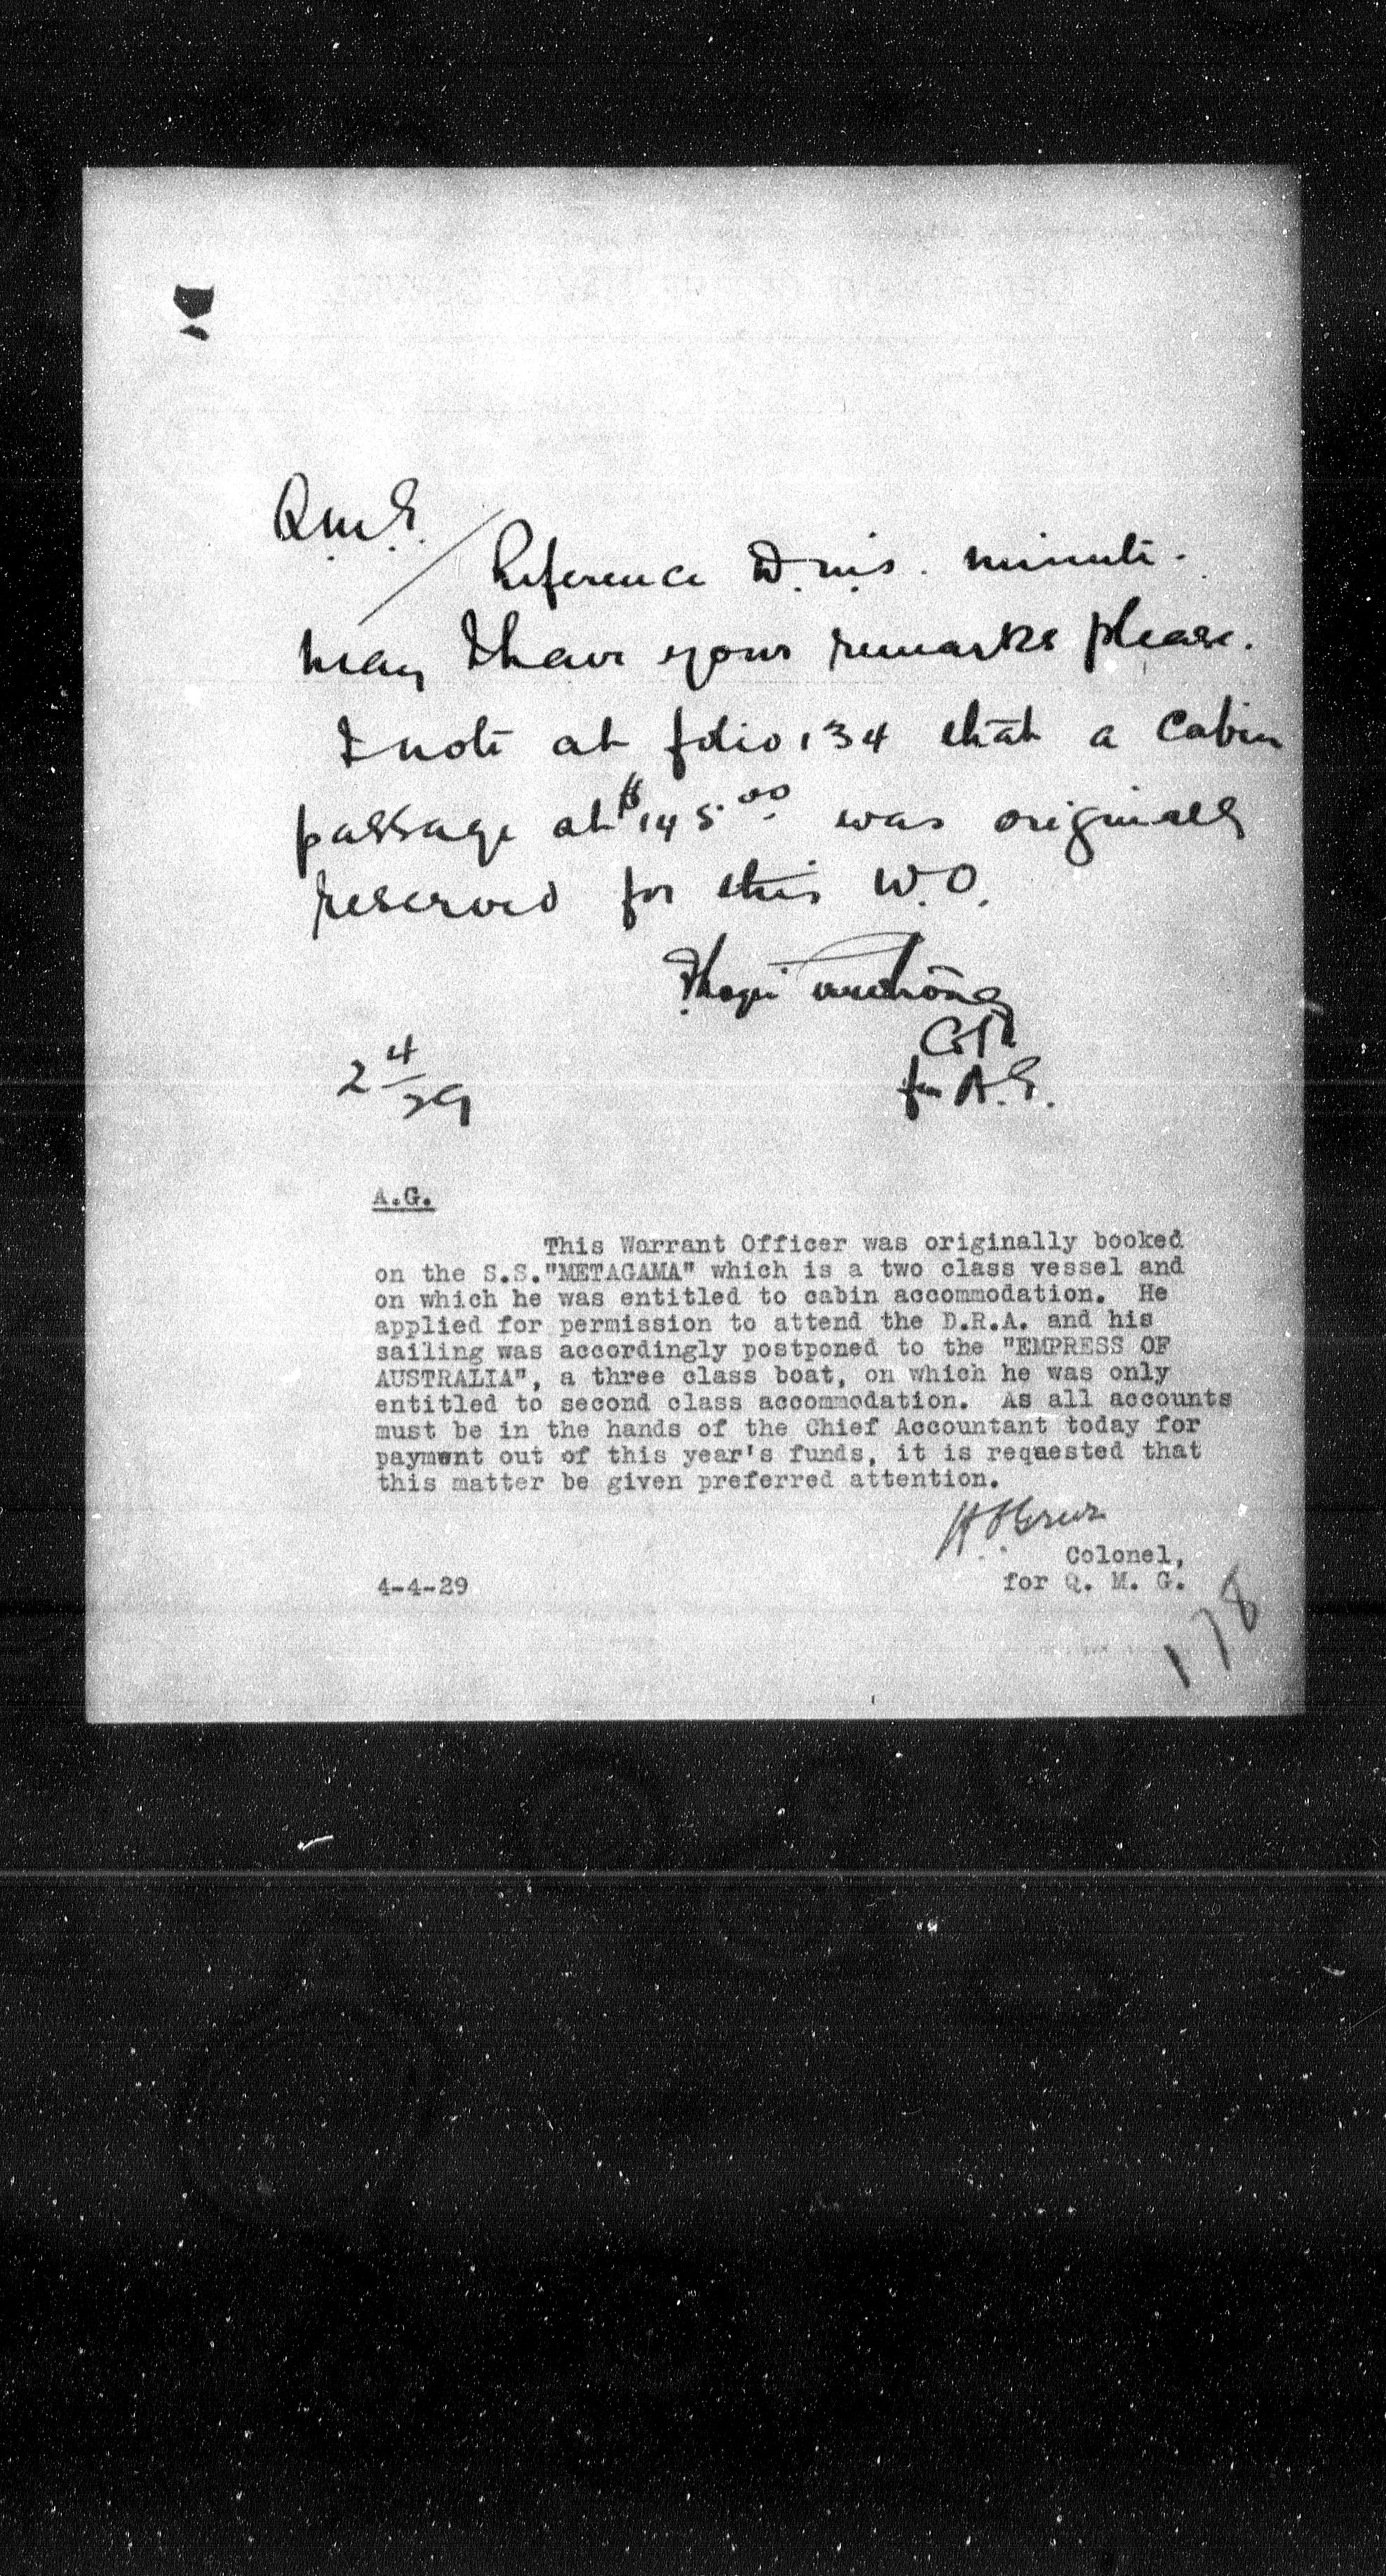 Q.M.G.
Reference D.M.S. minute.
May I have your remarks please.
I note at folio 134 that a Cabin
passage at $145.00 was originally
reserved for this W.O.
Col
for A.G.
2 4/29
A.G.
This Warrant Officer was originally booked
on the S.S."METAGAMA" which is a two class vessel and
on which he was entitled to cabin accommodation. He
applied for permission to attend the D.R.A. and his
sailing was accordingly postponed to the "EMPRESS OF
AUSTRALIA", a three class boat, on which he was only
entitled to second class accommodation. As all accounts
must be in the hands of the Chief Accountant today for
payment out of this year's funds, it is requested that
this matter be given preferred attention.
Colonel,
4-4-29 for Q. M. G.
178